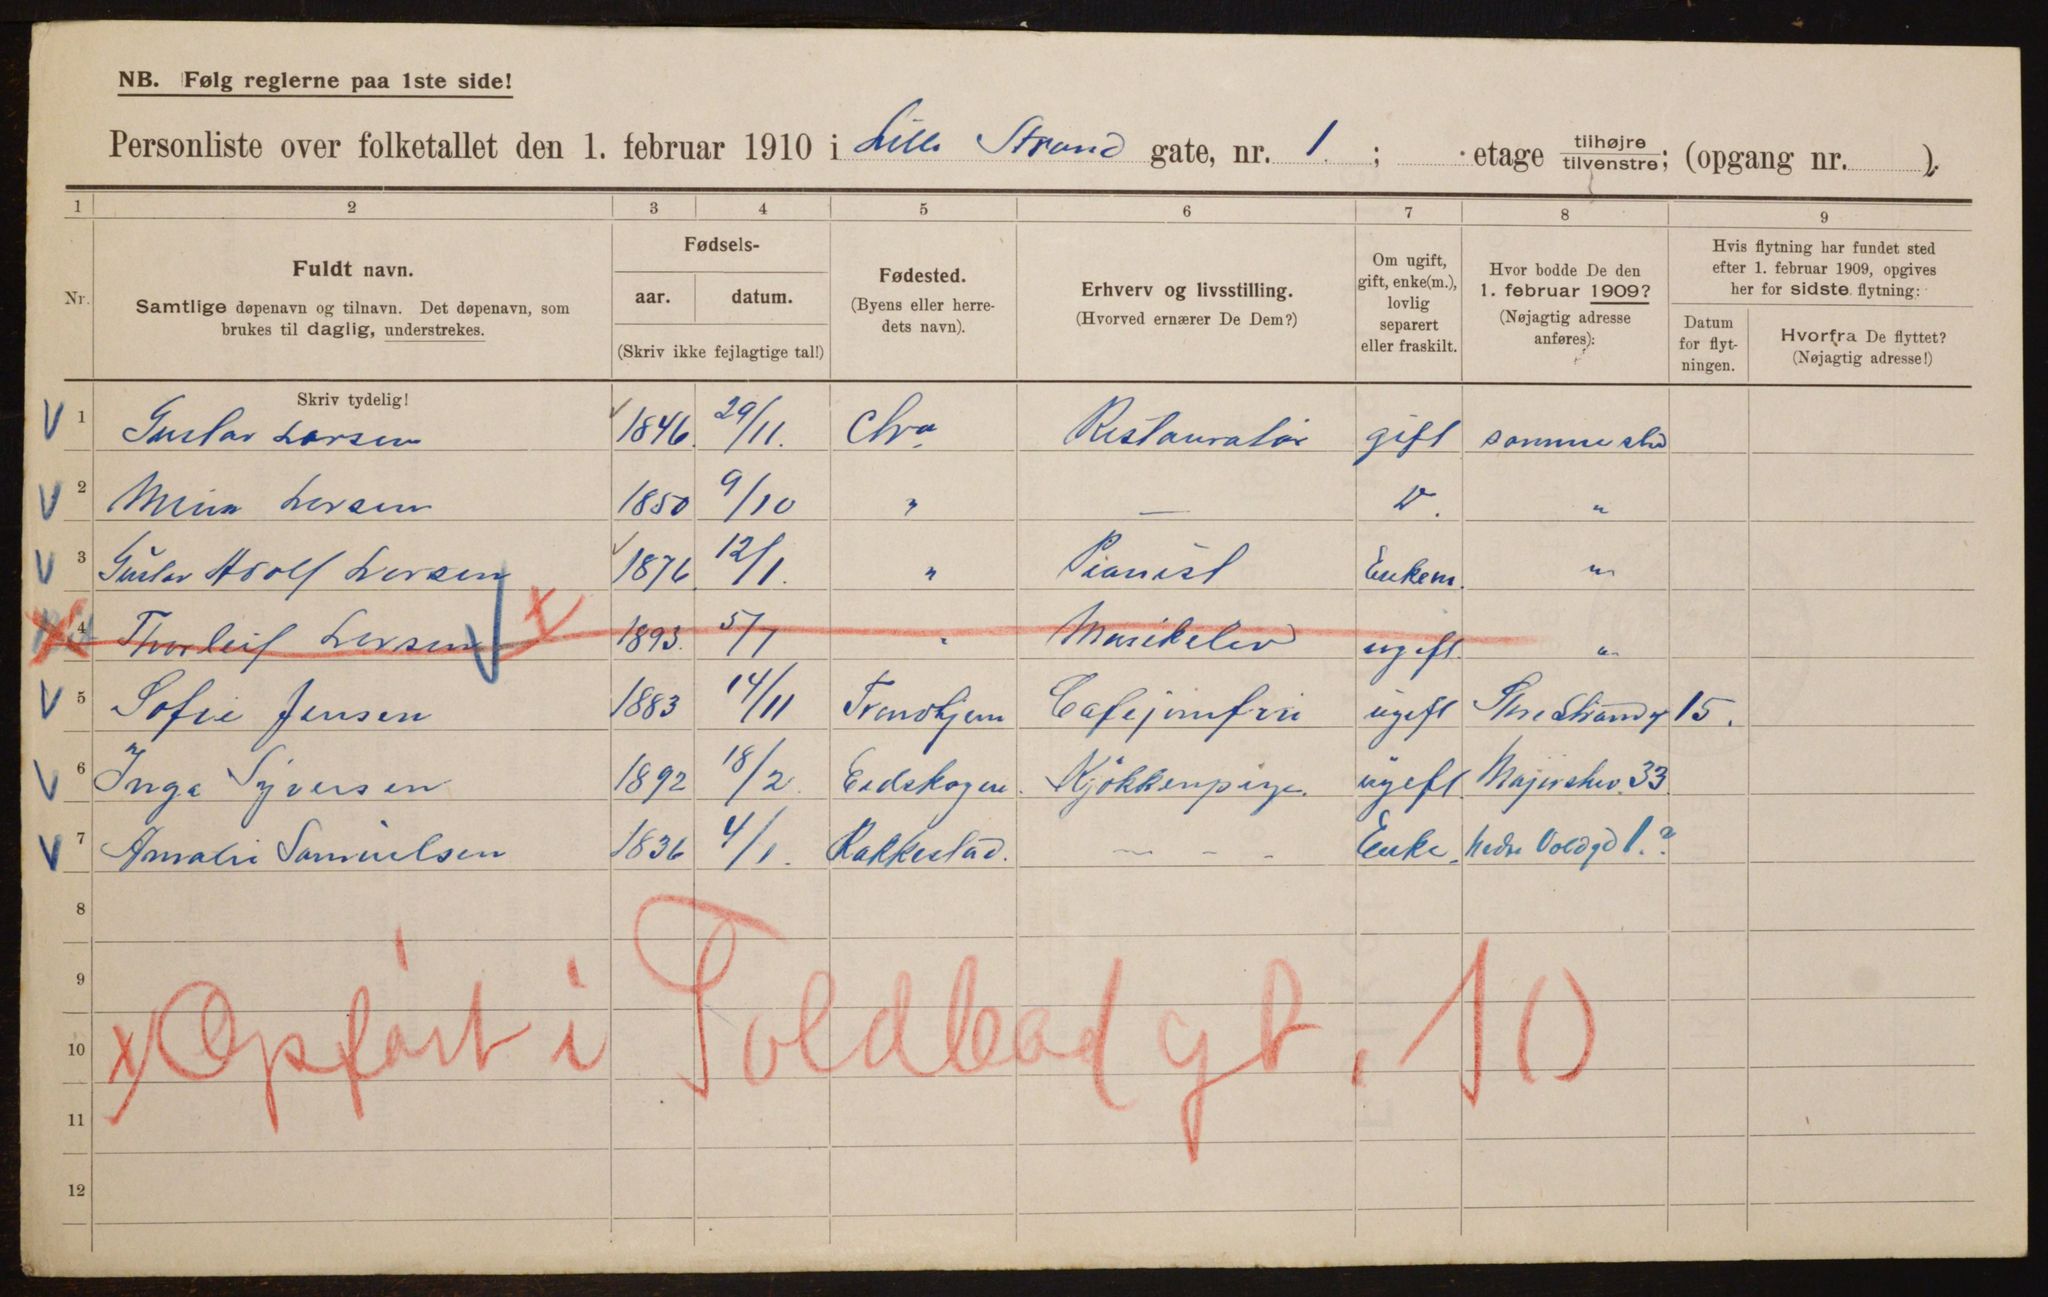 NB. Følg reglerne paa 1ste side!
Personliste over folketallet den 1. februar 1910 i Lille Strand gate, nr. 1. ; etage tilhøjre/tilvenstre; (opgang nr. ).
1 2 3 4 5 6 7 8 9
Nr.
Fuldt navn.
Samtlige døpenavn og tilnavn. Det døpenavn, som
brukes til daglig, understrekes.
Fødsels-
aar. datum.
(Skriv ikke fejlagtige tal!)
Fødested.
(Byens eller herre-
dets navn).
Erhverv og livsstilling.
(Hvorved ernærer De Dem?)
Om ugift,
gift, enke(m.),
lovlig
separert
eller fraskilt.
Hvor bodde De den
1. februar 1909?
(Nøjagtig adresse
anføres):
Hvis flytning har fundet sted
efter 1. februar 1909, opgives
her for sidste flytning:
Datum
for flyt-
ningen.
Hvorfra De flyttet?
(Nøjagtig adresse!)
Skriv tydelig!
V 1 Gustav Larsen 1846. 29/11. Chra Restauratør gift samme sted
V 2 Mina Larsen 1850 9/10 " — D. "
V 3 Gustav Adolf Larsen 1876 12/1. " Pianist Enkem. "
4 Thorleif Larsen x 1893. 5/7 " Musikelev ugift. "
V 5 Sofie Jensen 1883 14/11 Trondhjem Cafejomfru ugift Store Strandg 15.
V 6 Inga Syversen 1892 18/2. Eidskogen. Kjøkkenpige. ugift. Majorstuv. 33
V 7 Amalie Samuelsen 1836 4/1. Rakkestad. — - - Enke. Nedre Voldgd 1.?
8
9
10
11
12
x) Opført i Toldbodgt. 10